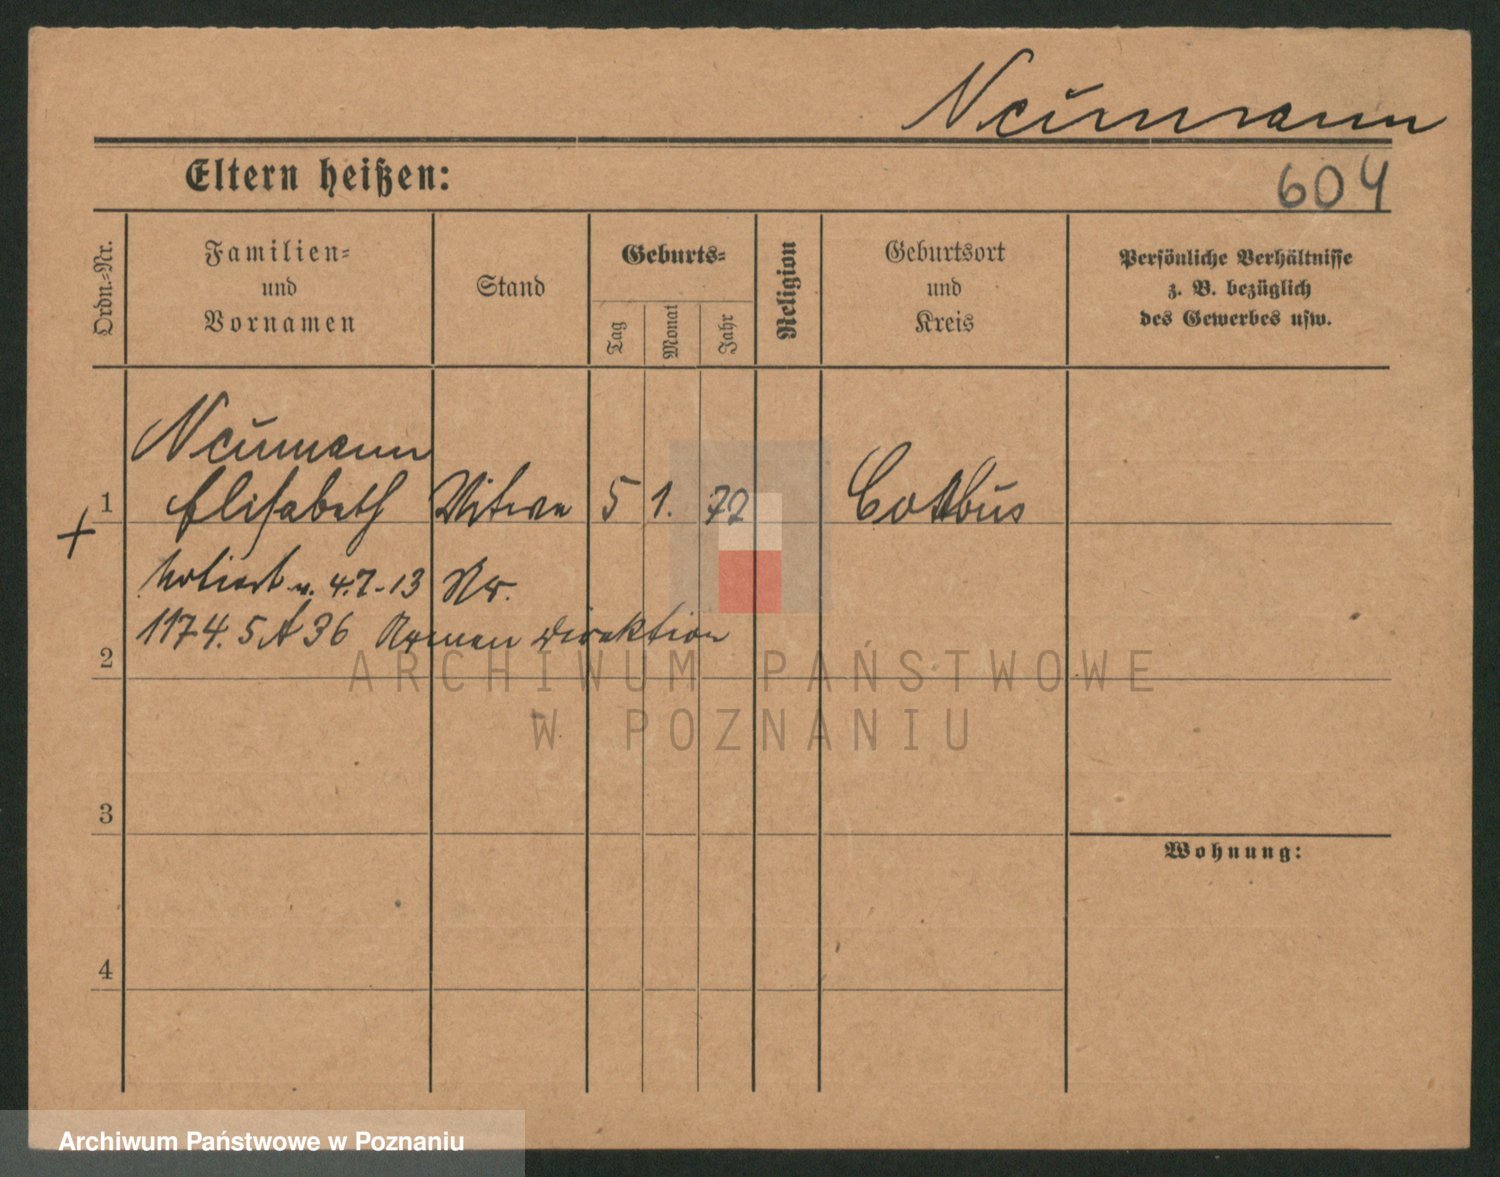 Neumann
Eltern heißen:
604
Ordn.-Nr.
Familien-
und
Vornamen
Stand
Geburts-
Tag
Monat
Jahr
Religion
Geburtsort
und
Kreis
Persönliche Verhältnisse
z. B. bezüglich
des Gewerbes usw.
Neumann
1 Elisabeth Witwe 5 1. 72 Cottbus
+
Notiert v. 4.7.-13 Nr.
1174. 5 A 36 Armen Direktion
2
ARCHIWUM PAŃSTWOWE
W POZNANIU
3
Wohnung:
4
Archiwum Państwowe w Poznaniu